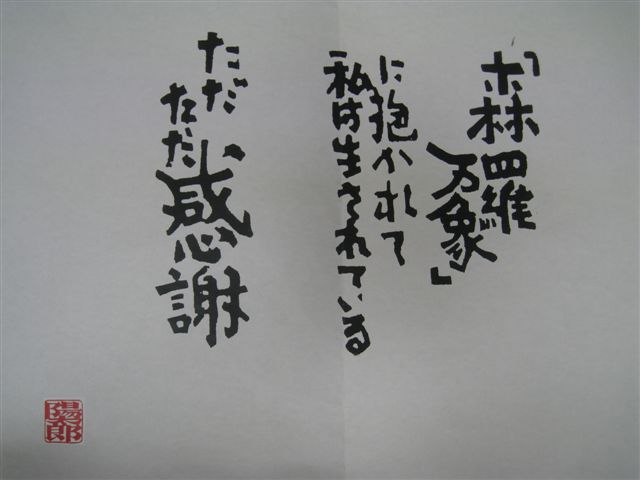 「森羅
万象」
に抱かれて
私は生されている
ただ
ただ
感謝
陽郎